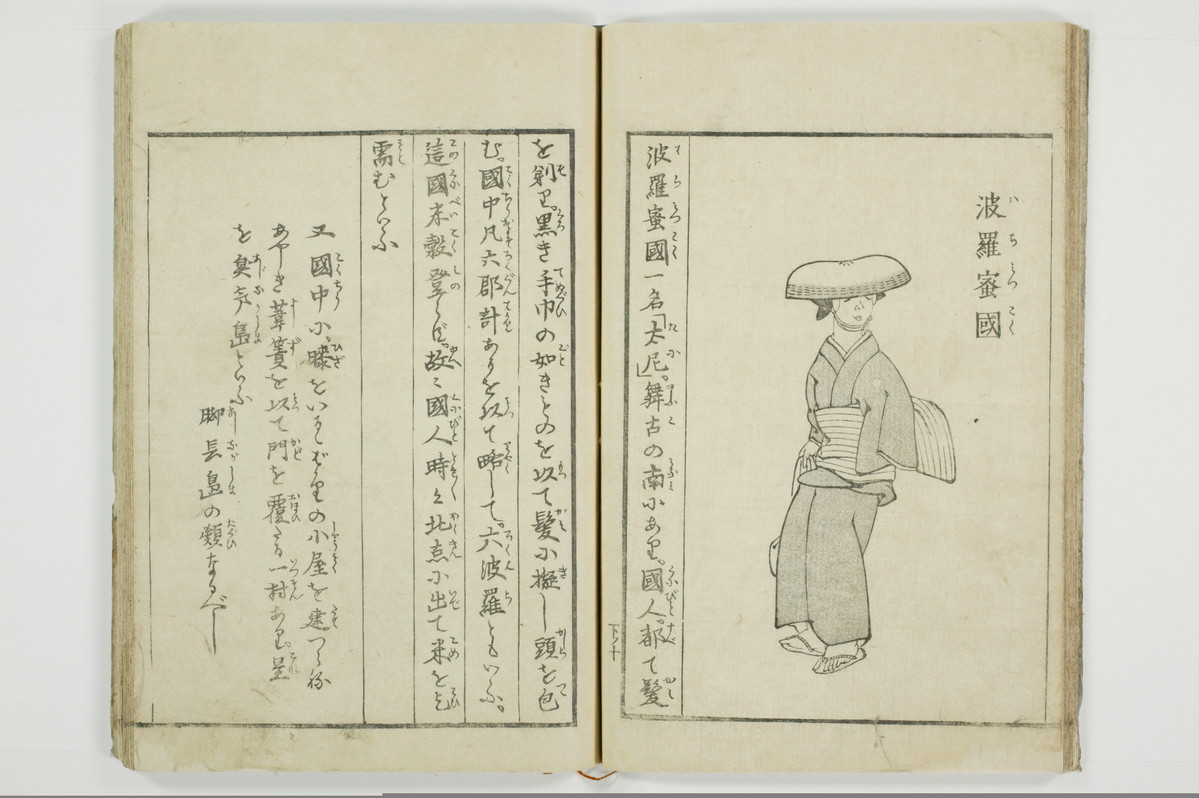 波羅蜜國
はらみつこく
波羅蜜國一名「太尼」。舞古の南にあり。國人。都て髪
を剃り。黒き手巾の如きものを以て髪に擬し頭を包
む。國中凡六郡計あるを以て略して。六波羅ともいふ。
這國米穀登らず。故に國人時々北点に出て米を乞
需むといふ
又國中に。膝をいるゝばかりの小屋を建つらね
あやしき葦簀を以て門を覆たる一村あり。是
を臭島といふ
脚長島の類なるべし
下ノ十